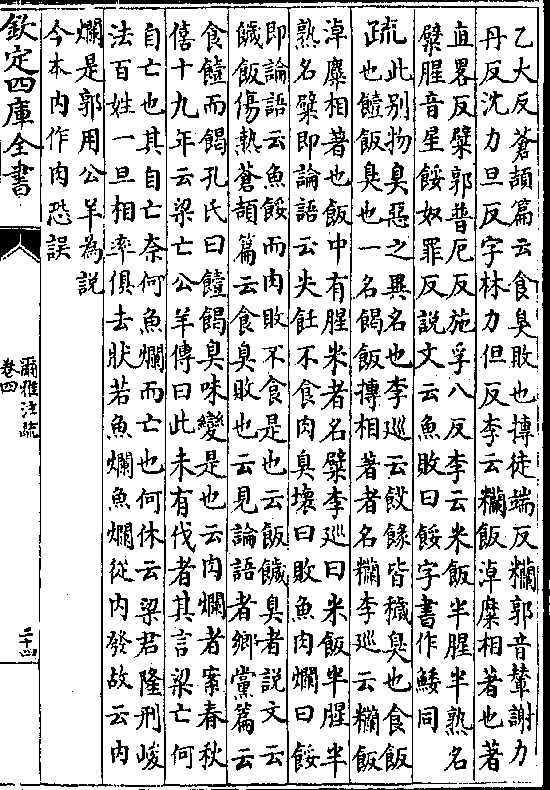 乙大反蒼頡篇云食臭敗也摶徒端反糷郭音輦謝力
丹反沈力旦反字林力但反李云糷飯淖糜相著也著
直畧反糪郭普厄反施孚八反李云米飯半腥半熟名
糪腥音星餒奴罪反説文云魚敗曰餒字書作鯘同
疏此别物臭惡之異名也李巡云餀餯皆穢臭也食飯
也饐飯臭也一名餲飯摶相著者名糷李巡云糷飯
淖糜相著也飯中有腥米者名糪李巡曰米飯半腥半
熟名糪即論語云失飪不食肉臭壞曰敗魚肉爛曰餒
即論語云魚餒而肉敗不食是也云飯饖臭者説文云
饖飯傷熱蒼頡篇云食臭敗也云見論語者鄉黨篇云
食饐而餲孔氏曰饐餲臭味變是也云肉爛者案春秋
僖十九年云梁亡公羊傳曰此未有伐者其言梁亡何
自亡也其自亡奈何魚爛而亡也何休云梁君隆刑峻
法百姓一旦相率俱去狀若魚爛魚爛從内發故云内
爛是郭用公羊為説
今本内作肉恐誤
欽定四庫全書
爾雅注疏
卷四
二十四